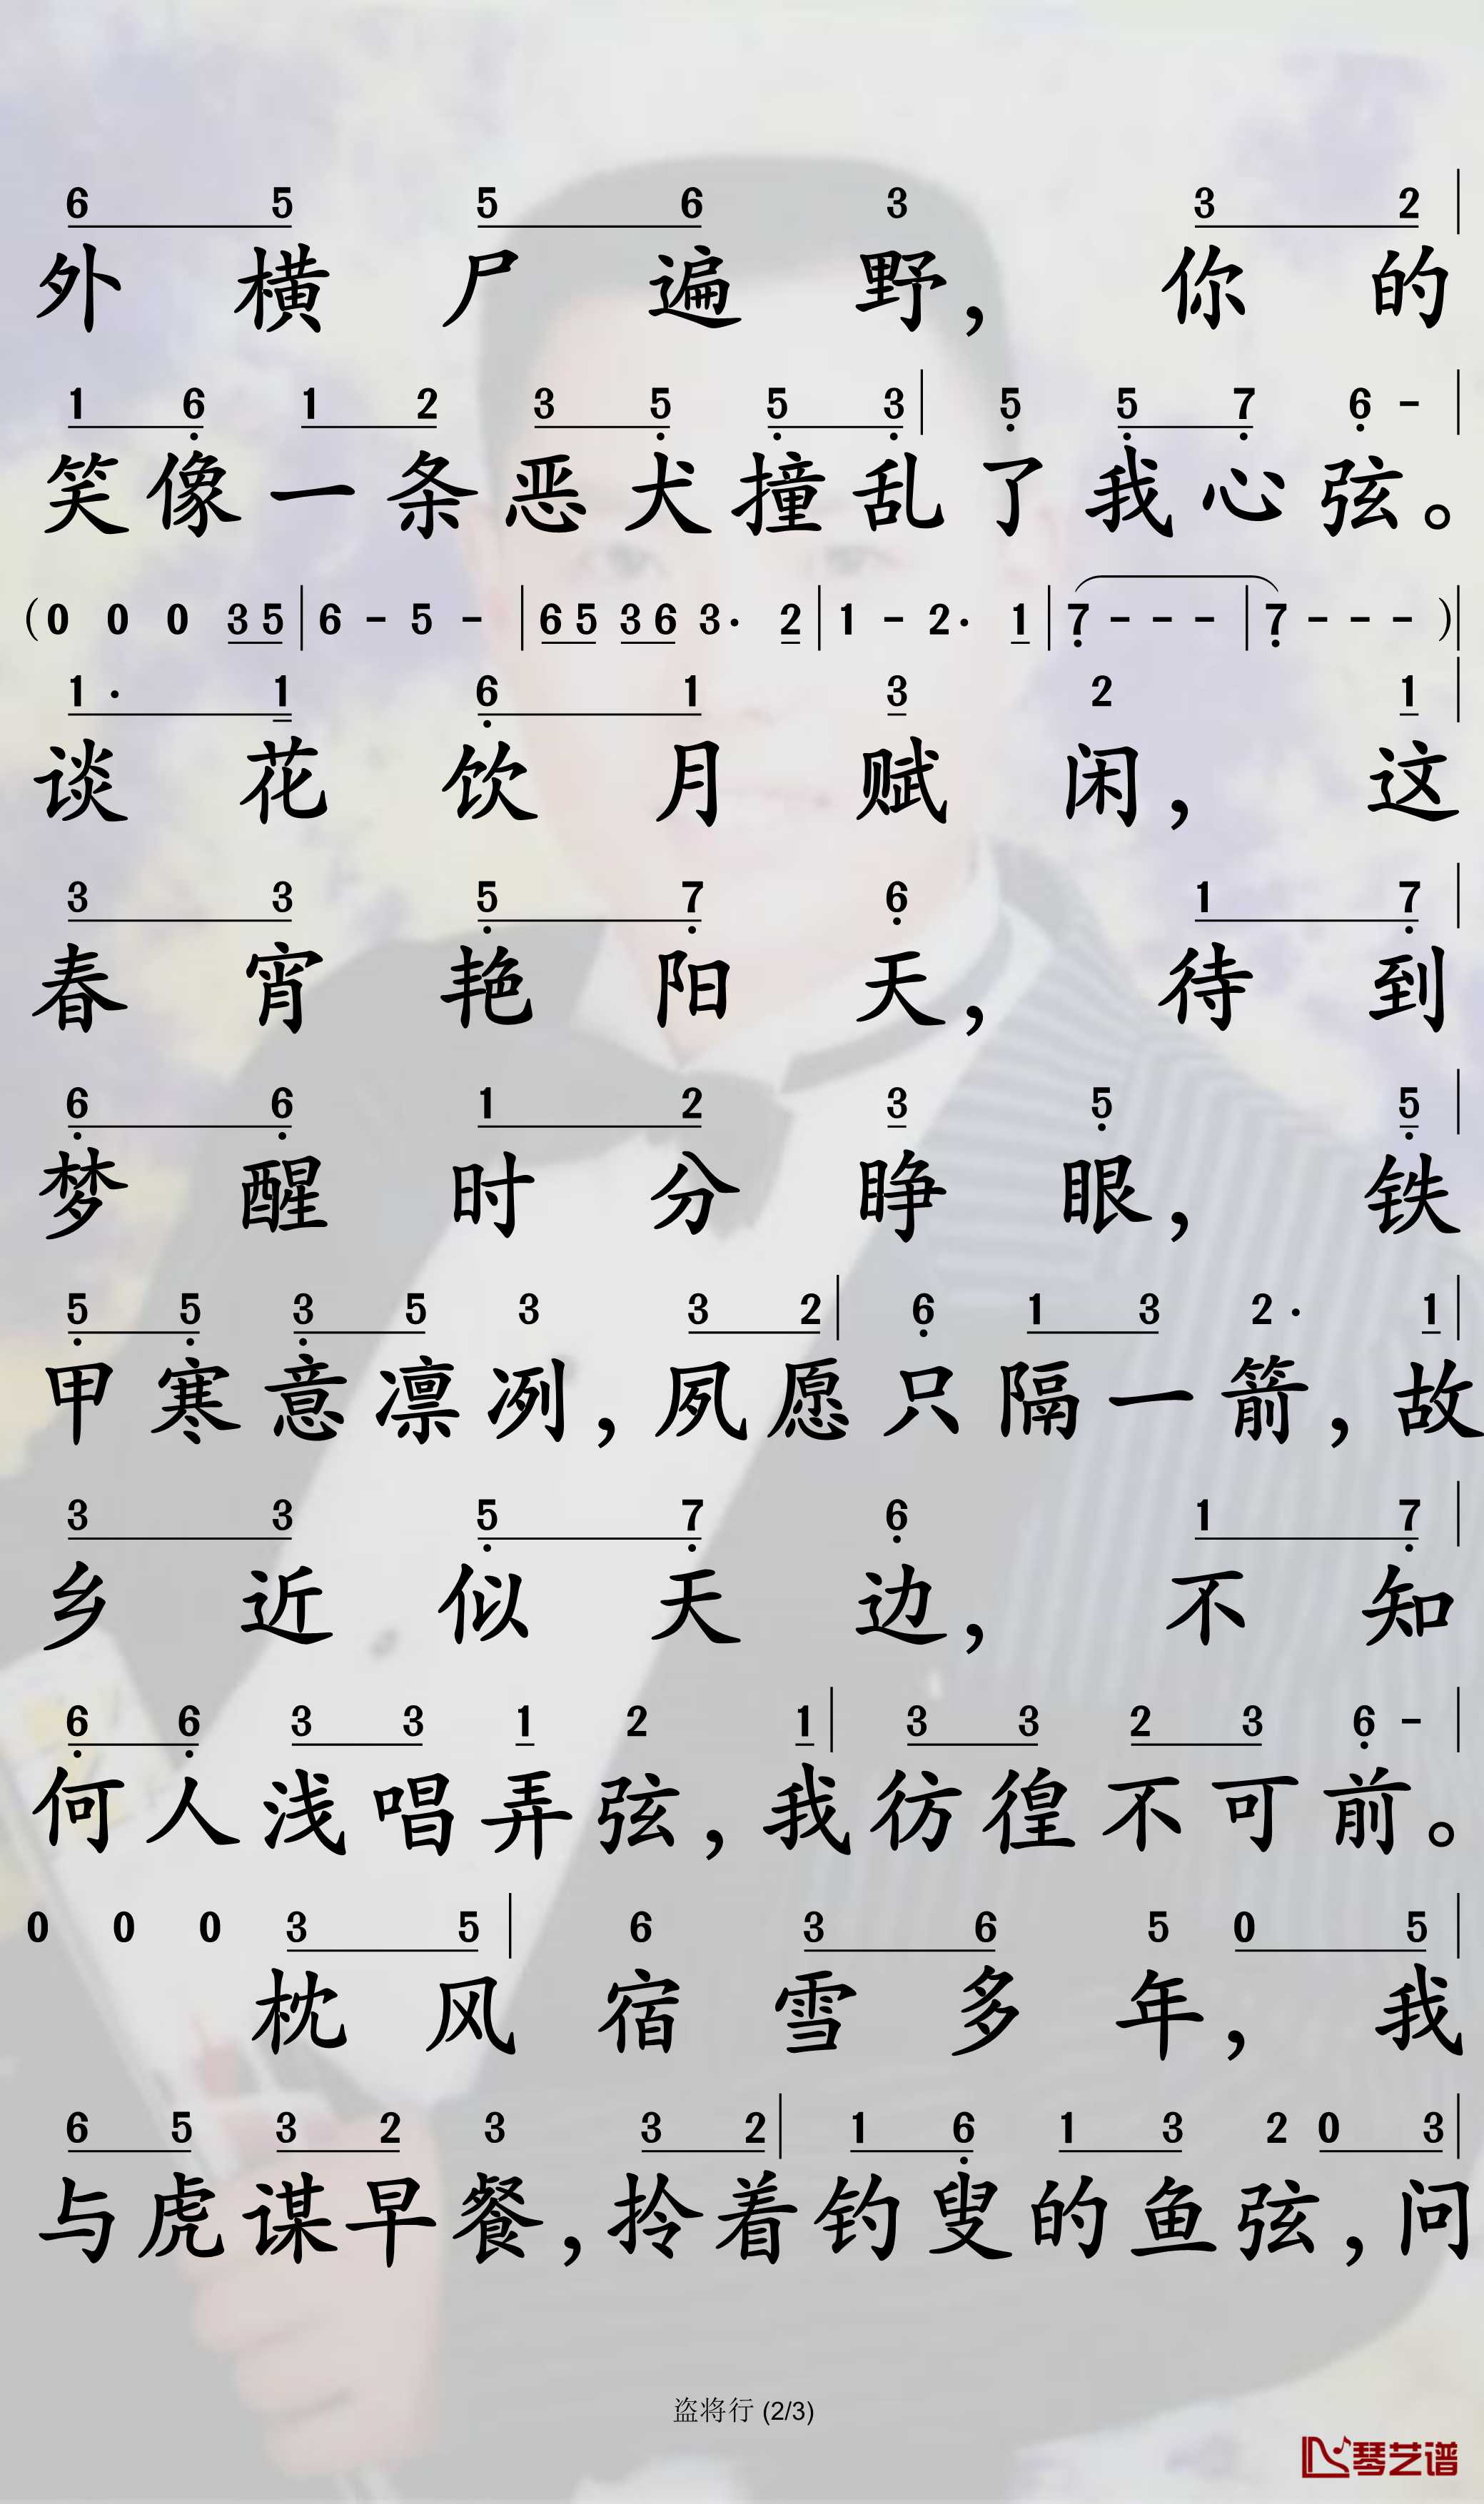 6 5 5 6 3 3 2
外横尸遍野，你的
1 6 1 2 3 5 5 3 5 5 7 6 -
笑像一条恶犬撞乱了我心弦。
(0 0 0 3 5 | 6 - 5 - | 6 5 3 6 3· 2 | 1 - 2· 1 | 7 - - - | 7 - - - )|
1· 1 6 1 3 2 1
谈花饮月赋闲，这
3 3 5 7 6 1 7
春宵艳阳天，待到
6 6 1 2 3 5 5
梦醒时分睁眼，铁
5 5 3 5 3 3 2 6 1 3 2· 1
甲寒意凛冽，夙愿只隔一箭，故
3 3 5 7 6 1 7
乡近似天边，不知
6 6 3 3 1 2 1 3 3 2 3 6 -
何人浅唱弄弦，我彷徨不可前。
0 0 0 3 5 6 3 6 5 0 5
枕风宿雪多年，我
6 5 3 2 3 3 2 1 6 1 3 2 0 3
与虎谋早餐，拎着钓叟的鱼弦，问
盗将行 (2/3)
琴艺谱